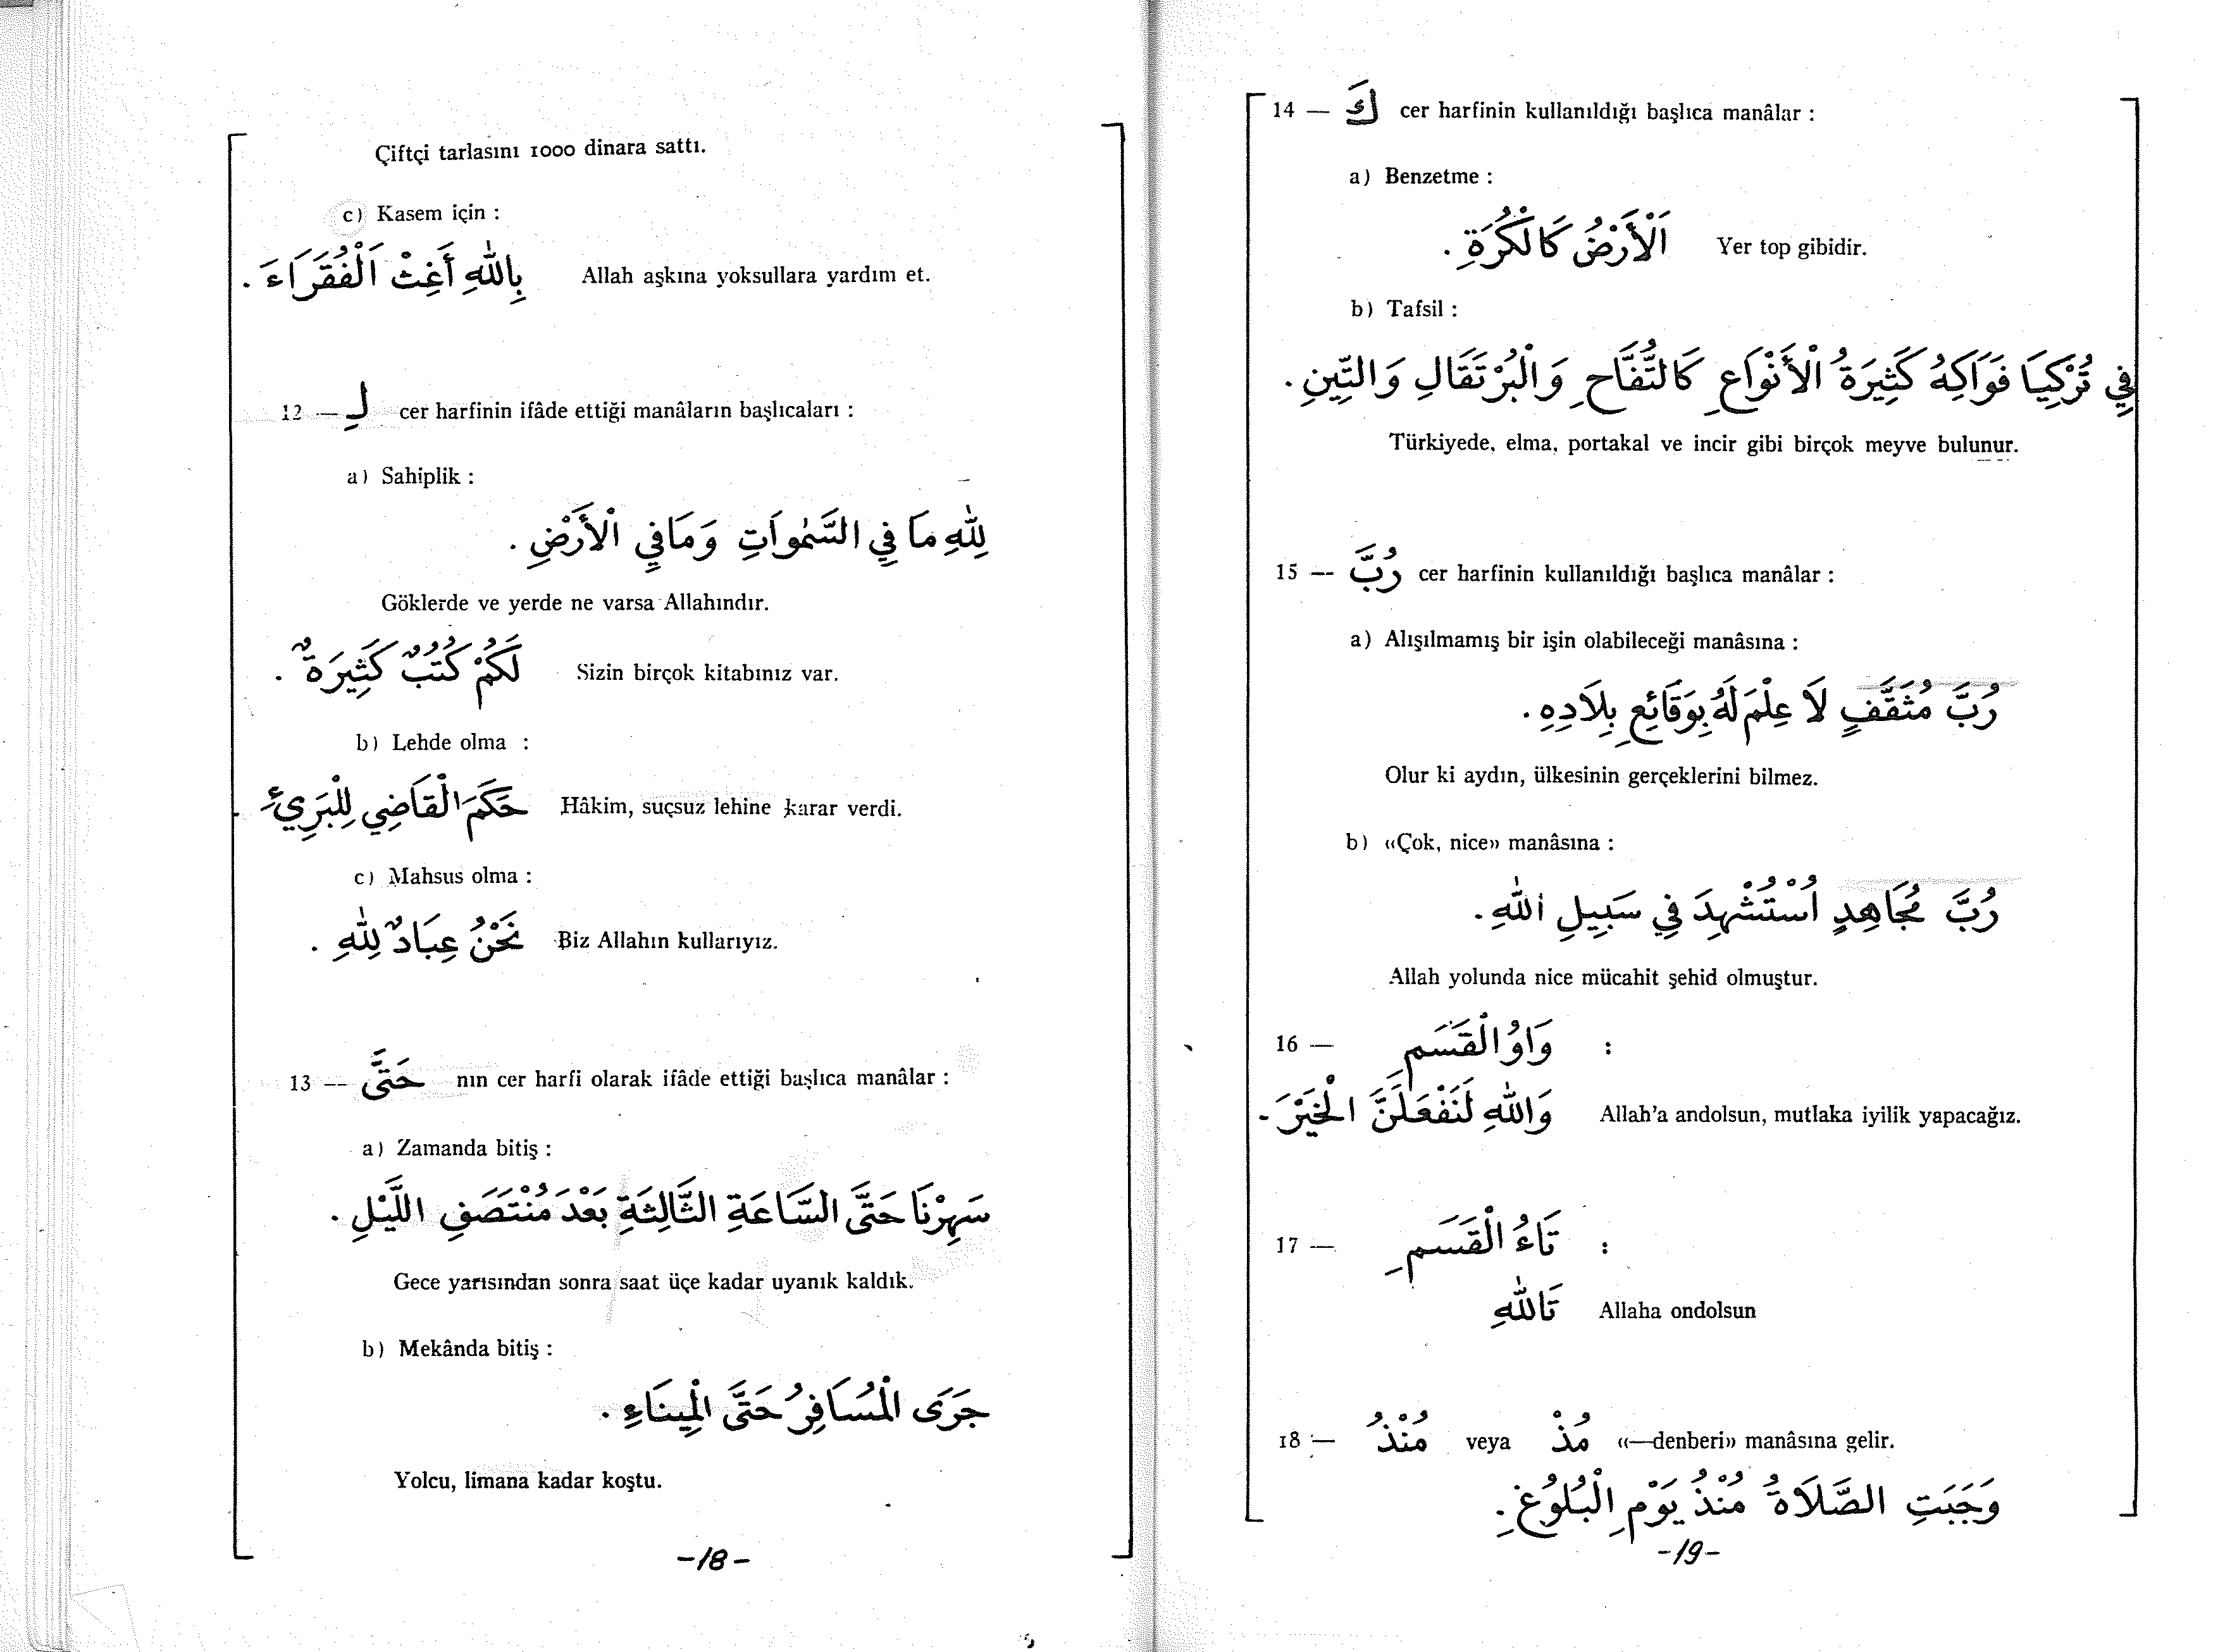 Çiftçi tarlasını 1000 dinara sattı.
c) Kasem için :
بِاللّٰهِ أَغِثْ اَلْفُقَرَاءَ . Allah aşkına yoksullara yardım et.
12 — لِـ cer harfinin ifâde ettiği manâların başlıcaları :
a) Sahiplik :
لِلّٰهِ مَا فِي السَّمٰوَاتِ وَمَا فِي الْأَرْضِ .
Göklerde ve yerde ne varsa Allahındır.
لَكُمْ كُتُبٌ كَثِيرَةٌ . Sizin birçok kitabınız var.
b) Lehde olma :
حَكَمَ الْقَاضِي لِلْبَرِيءِ . Hâkim, suçsuz lehine karar verdi.
c) Mahsus olma :
نَحْنُ عِبَادٌ لِلّٰهِ . Biz Allahın kullarıyız.
13 — حَتَّى nın cer harfi olarak ifâde ettiği başlıca manâlar :
a) Zamanda bitiş :
سَهِرْنَا حَتَّى السَّاعَةِ الثَّالِثَةِ بَعْدَ مُنْتَصَفِ اللَّيْلِ .
Gece yarısından sonra saat üçe kadar uyanık kaldık.
b) Mekânda bitiş :
جَرَى الْمُسَافِرُ حَتَّى الْمِينَاءِ .
Yolcu, limana kadar koştu.
-18-
14 — كَ cer harfinin kullanıldığı başlıca manâlar :
a) Benzetme :
اَلْأَرْضُ كَالْكُرَةِ . Yer top gibidir.
b) Tafsil :
فِي تُرْكِيَا فَوَاكِهُ كَثِيرَةُ الْأَنْوَاعِ كَالتُّفَّاحِ وَالْبُرْتَقَالِ وَالتِّينِ .
Türkiyede, elma, portakal ve incir gibi birçok meyve bulunur.
15 — رُبَّ cer harfinin kullanıldığı başlıca manâlar :
a) Alışılmamış bir işin olabileceği manâsına :
رُبَّ مُثَقَّفٍ لَا عِلْمَ لَهُ بِوَقَائِعِ بِلَادِهِ .
Olur ki aydın, ülkesinin gerçeklerini bilmez.
b) «Çok, nice» manâsına :
رُبَّ مُجَاهِدٍ اُسْتُشْهِدَ فِي سَبِيلِ اللّٰهِ .
Allah yolunda nice mücahit şehid olmuştur.
16 — وَاوُ الْقَسَمِ :
وَاللّٰهِ لَنَفْعَلَنَّ الْخَيْرَ . Allah'a andolsun, mutlaka iyilik yapacağız.
17 — تَاءُ الْقَسَمِ :
تَاللّٰهِ Allaha ondolsun
18 — مُنْذُ veya مُذْ «—denberi» manâsına gelir.
وَجَبَتِ الصَّلَاةُ مُنْذُ يَوْمِ الْبُلُوغِ .
-19-